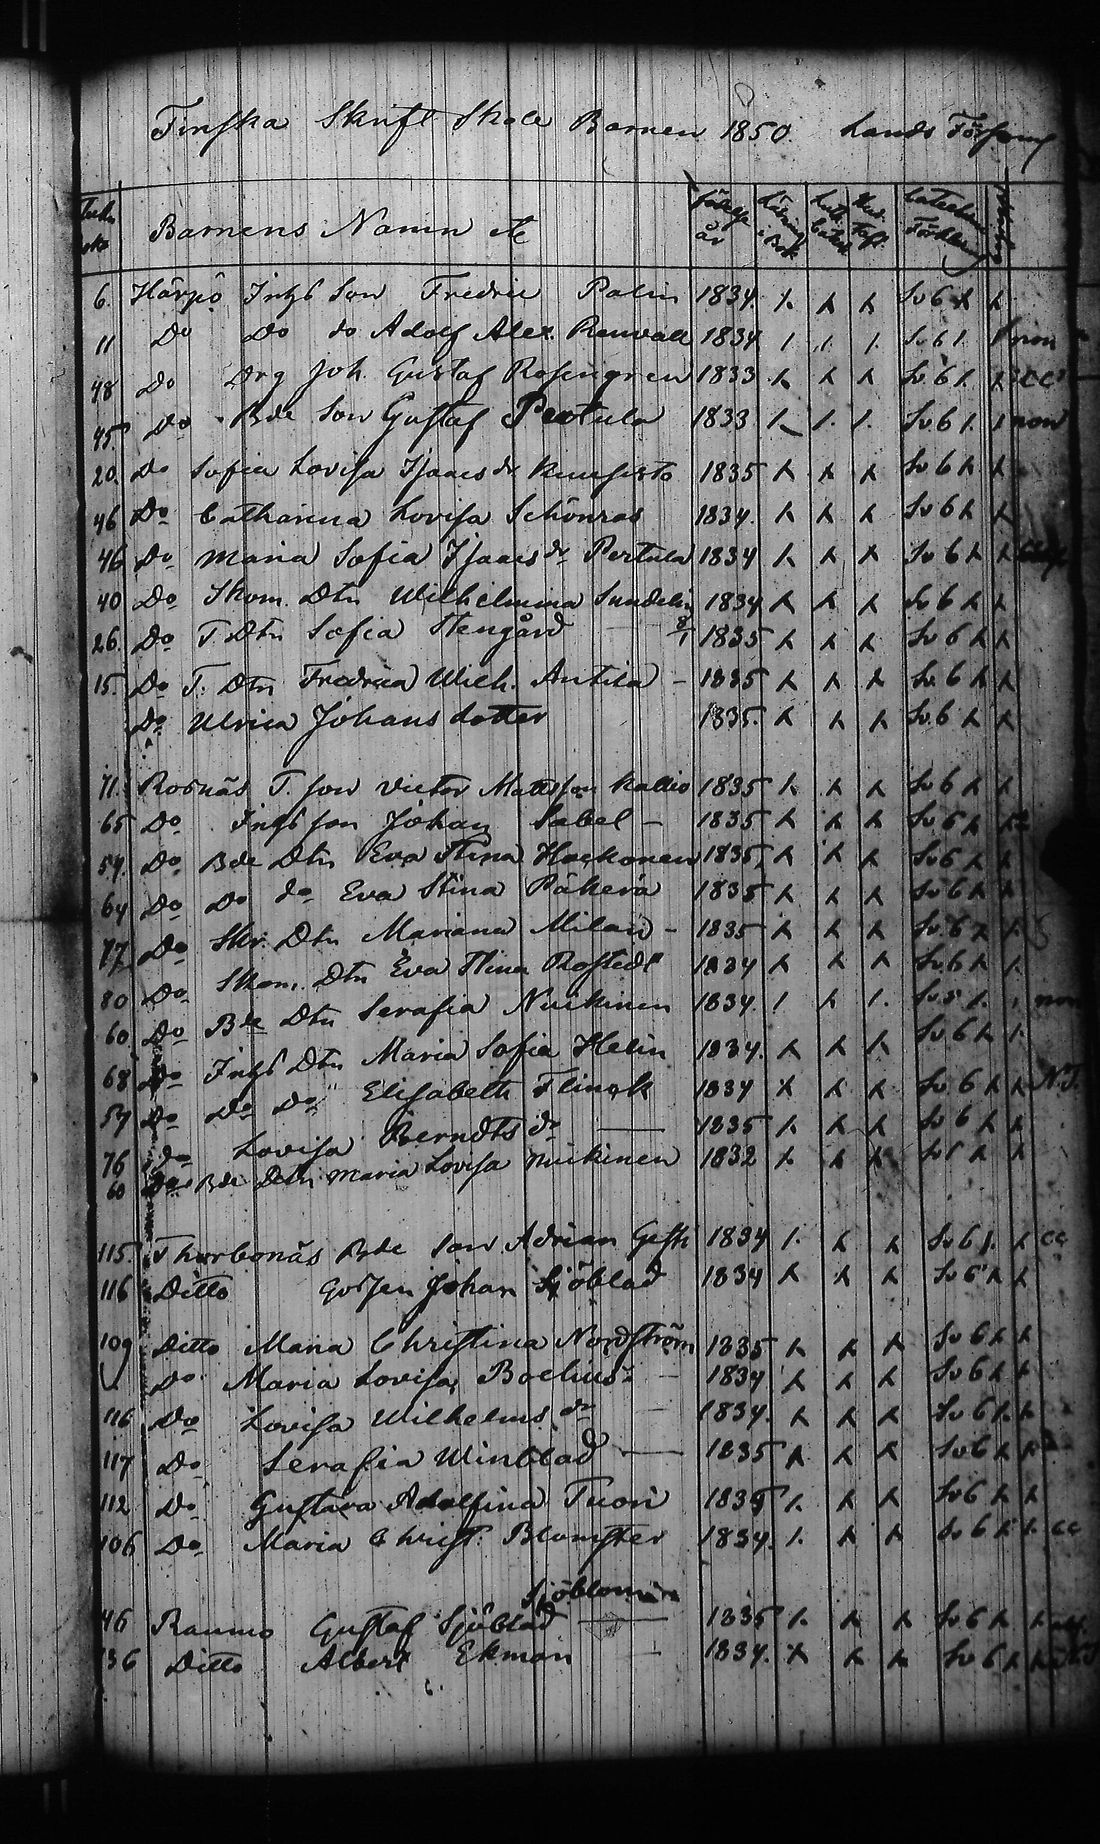 Finska Skrift Skole Barnen 1850. Lands Förs
Barnens Namn etc Födelse år Läsning i Bok Luth. Catech. Förklaring
6. Härpö Inhs Son Fredric Palin 1834. x x x Sv 6 x x
11 Do Do do Adolf Alex. Renvall 1834 1. 1. 1. Sv 6 1. non
48 Do Drg Joh. Gustaf Rosengren 1833 x x x Sv 6 1. x cc
45. Do Bde Son Gustaf Pertula 1833 1. 1. 1. Sv 6 1. 1 non
20. Do Sofia Lovisa Isaacs dr 1835 x x x Sv 6 x x
46 Do Catharina Lovisa Schönros 1834. x x x Sv 6 x x
46 Do Maria Sofia Isaacs dr Pertula 1834 x x x Sv 6 x x
40 Do Skom. Dtr Wilhelmina Sundelin 1834 x x x Sv 6 x x
26. Do T. Dtr Sofia Stengård 8/1 1835 x x x Sv 6 x x
15. Do T. Dtr Fredrica Wilh. Antila - 1835 x x x Sv 6 x x
Do Ulrica Johans dotter 1835. x x x Sv. 6 x x
71. Rosnäs T. Son Victor Mattsson Kallio 1835 x x x Sv 6 x x
65 Do Inhs son Johan Sabel - 1835 x x x Sv 6 x
59. Do Bde Dtr Eva Stina Hackonen 1835 x x x Sv 6 x x
64 Do Do do Eva Stina Päkerä 1835 x x x Sv 6 x x
77 Do Skr. Dtr Mariana Milan - 1835 x x x Sv 6 x x
80 Do Skom. Dtr Eva Stina Rostedt 1834 x x x Sv 6 x 1.
60. Do Bde Dtr Serafia Nuikinen 1834. 1 x 1. Sv 5 1. 1 non
68 Do Inhs Dtr Maria Sofia Helin 1834. x x x Sv 6 x 1.
57 Do Do Do Elisabeth Flinck 1834 x x x Sv 6 x x N.J.
76 do Lovisa Berndts dr 1835 x x x Sv 6 x x
60 Do Bde Dotr Maria Lovisa Nuikinen 1832 x x x Sv 5 x x
115. Thorbonäs Bde Son Adrian 1834 1. x x Sv 6 1. x cc
116 Ditto Gossen Johan Sjöblad 1834 x x x Sv 6 x x
109 Ditto Maria Christina Nordström 1835 x x x Sv 6 x x
Do Maria Lovisa Boelius - 1834 x x x Sv 6 x x
116 Do Lovisa Wilhelms dr 1834. x x x Sv 6 x x
117 Do Serafia Winblad 1835 x x x Sv 6 x x
112 Do Gustava Adolfina Tuori 1835 1. x x Sv 6 x x
106 Do Maria Christ. Blomster 1834. 1. x x Sv 6 x 1. cc
Sjöblom
46 Raumo Gustaf Sjöblad 1835 1. x x Sv 6 x x
36 Ditto Albert Ekman 1834. x x x Sv 6 x x